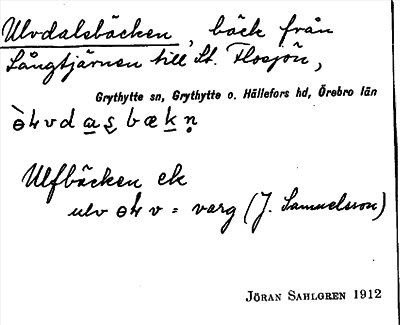 Ulvdalsbäcken, bäck från
Långtjärnen till St. Flosjön,
Grythytte sn, Grythytte o. Hällefors hd, Örebro län
Ulfbäcken ek
ulv = varg (J. Samuelsson)
JÖRAN SAHLGREN 1912